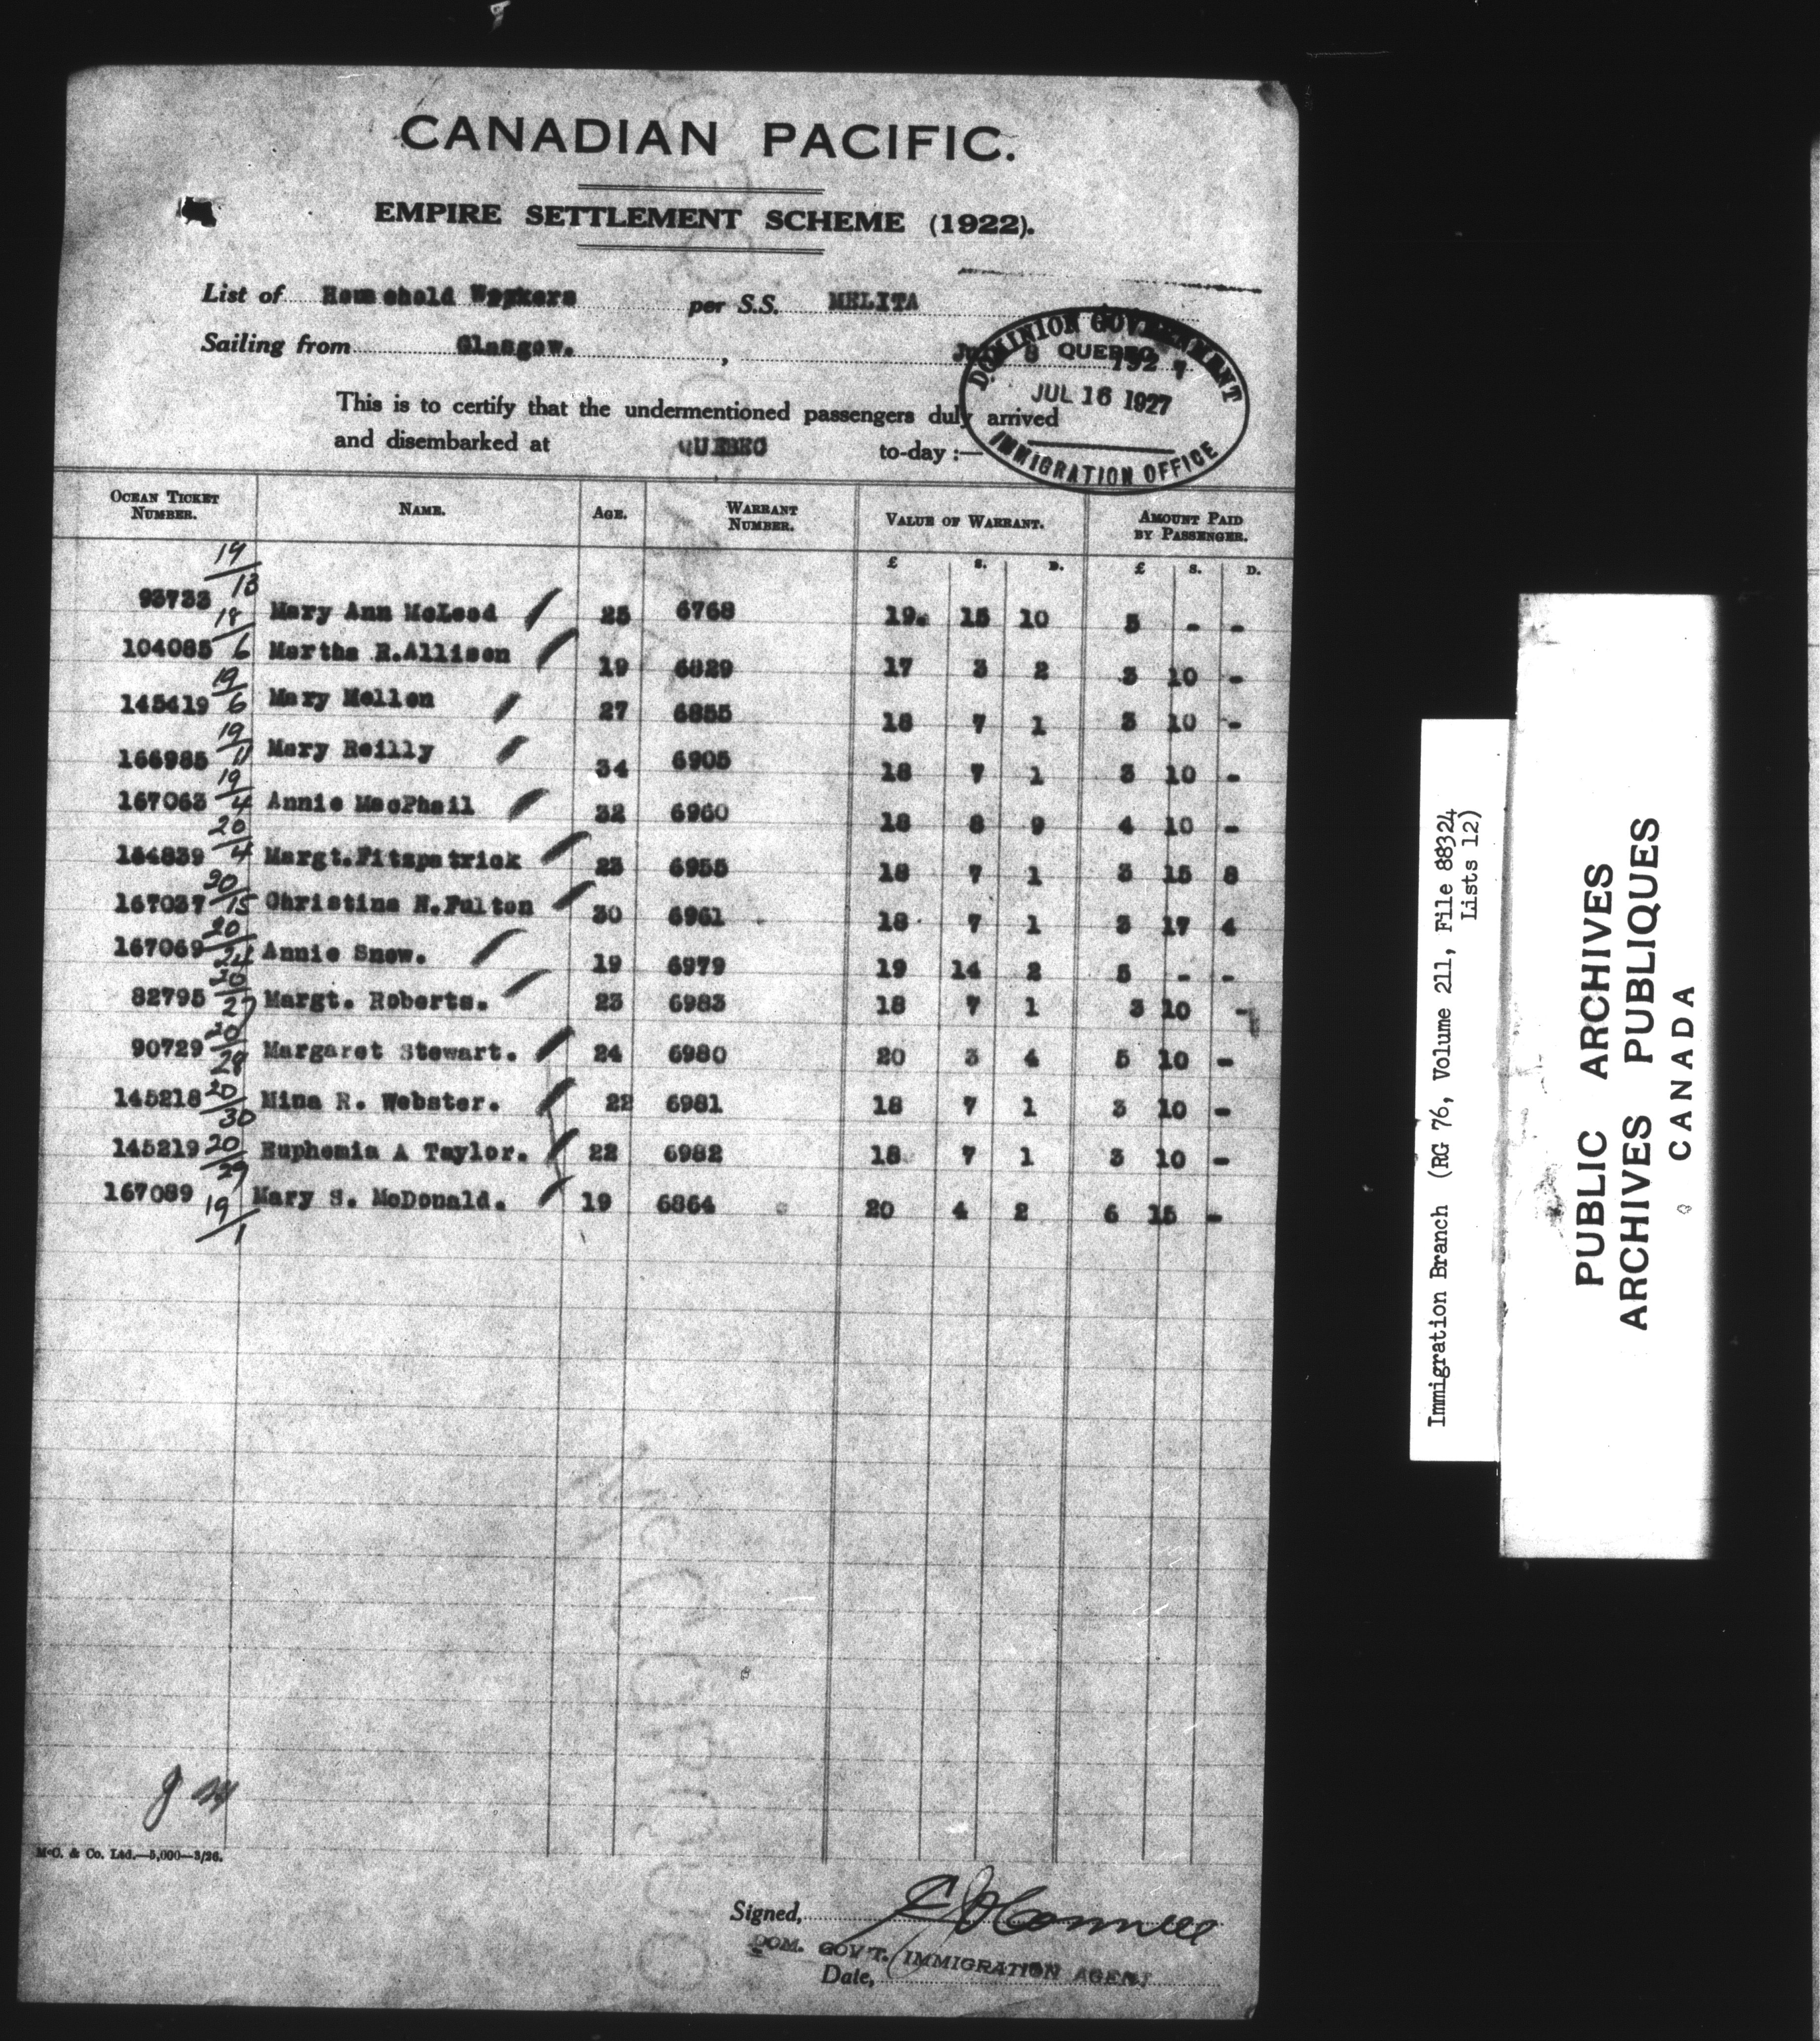 CANADIAN PACIFIC.
EMPIRE SETTLEMENT SCHEME (1922).
List of Household Workers per S.S. MELITA
Sailing from Glasgow. , 8 1927
DOMINION GOVERNMENT
QUEBEC
JUL 16 1927
IMMIGRATION OFFICE
This is to certify that the undermentioned passengers duly arrived
and disembarked at QUEBEC to-day :—
OCEAN TICKET NUMBER. NAME. AGE. WARRANT NUMBER. VALUE OF WARRANT. AMOUNT PAID BY PASSENGER.
£ S. D. £ S. D.
93733 19/13 Mary Ann McLeod 25 6768 19. 15 10 5 - -
104085 18/6 Martha R.Allison 19 6829 17 3 2 3 10 -
145419 19/6 Mary Mellon 27 6855 18 7 1 3 10 -
166985 19/11 Mary Reilly 34 6905 18 7 1 3 10 -
167063 19/4 Annie MacPhail 32 6960 18 8 9 4 10 -
184839 20/4 Margt.Fitzpatrick 23 6955 18 7 1 3 15 8
167037 20/15 Christina H.Fulton 30 6961 18 7 1 3 17 4
167069 20/24 Annie Snow. 19 6979 19 14 2 5 - -
82795 20/27 Margt. Roberts. 23 6983 18 7 1 3 10 -
90729 20/28 Margaret Stewart. 24 6980 20 3 4 5 10 -
145218 20/30 Mina R. Webster. 22 6981 18 7 1 3 10 -
145219 20/29 Euphemia A Taylor. 22 6982 18 7 1 3 10 -
167089 19/1 Mary S. McDonald. 19 6864 20 4 2 6 15 -
McC. & Co. Ltd.—5,000—3/26.
Signed,
DOM. GOV'T. IMMIGRATION AGENT
Date,
Immigration Branch (RG 76, Volume 211, File 88324
Lists 12)
PUBLIC ARCHIVES
ARCHIVES PUBLIQUES
CANADA